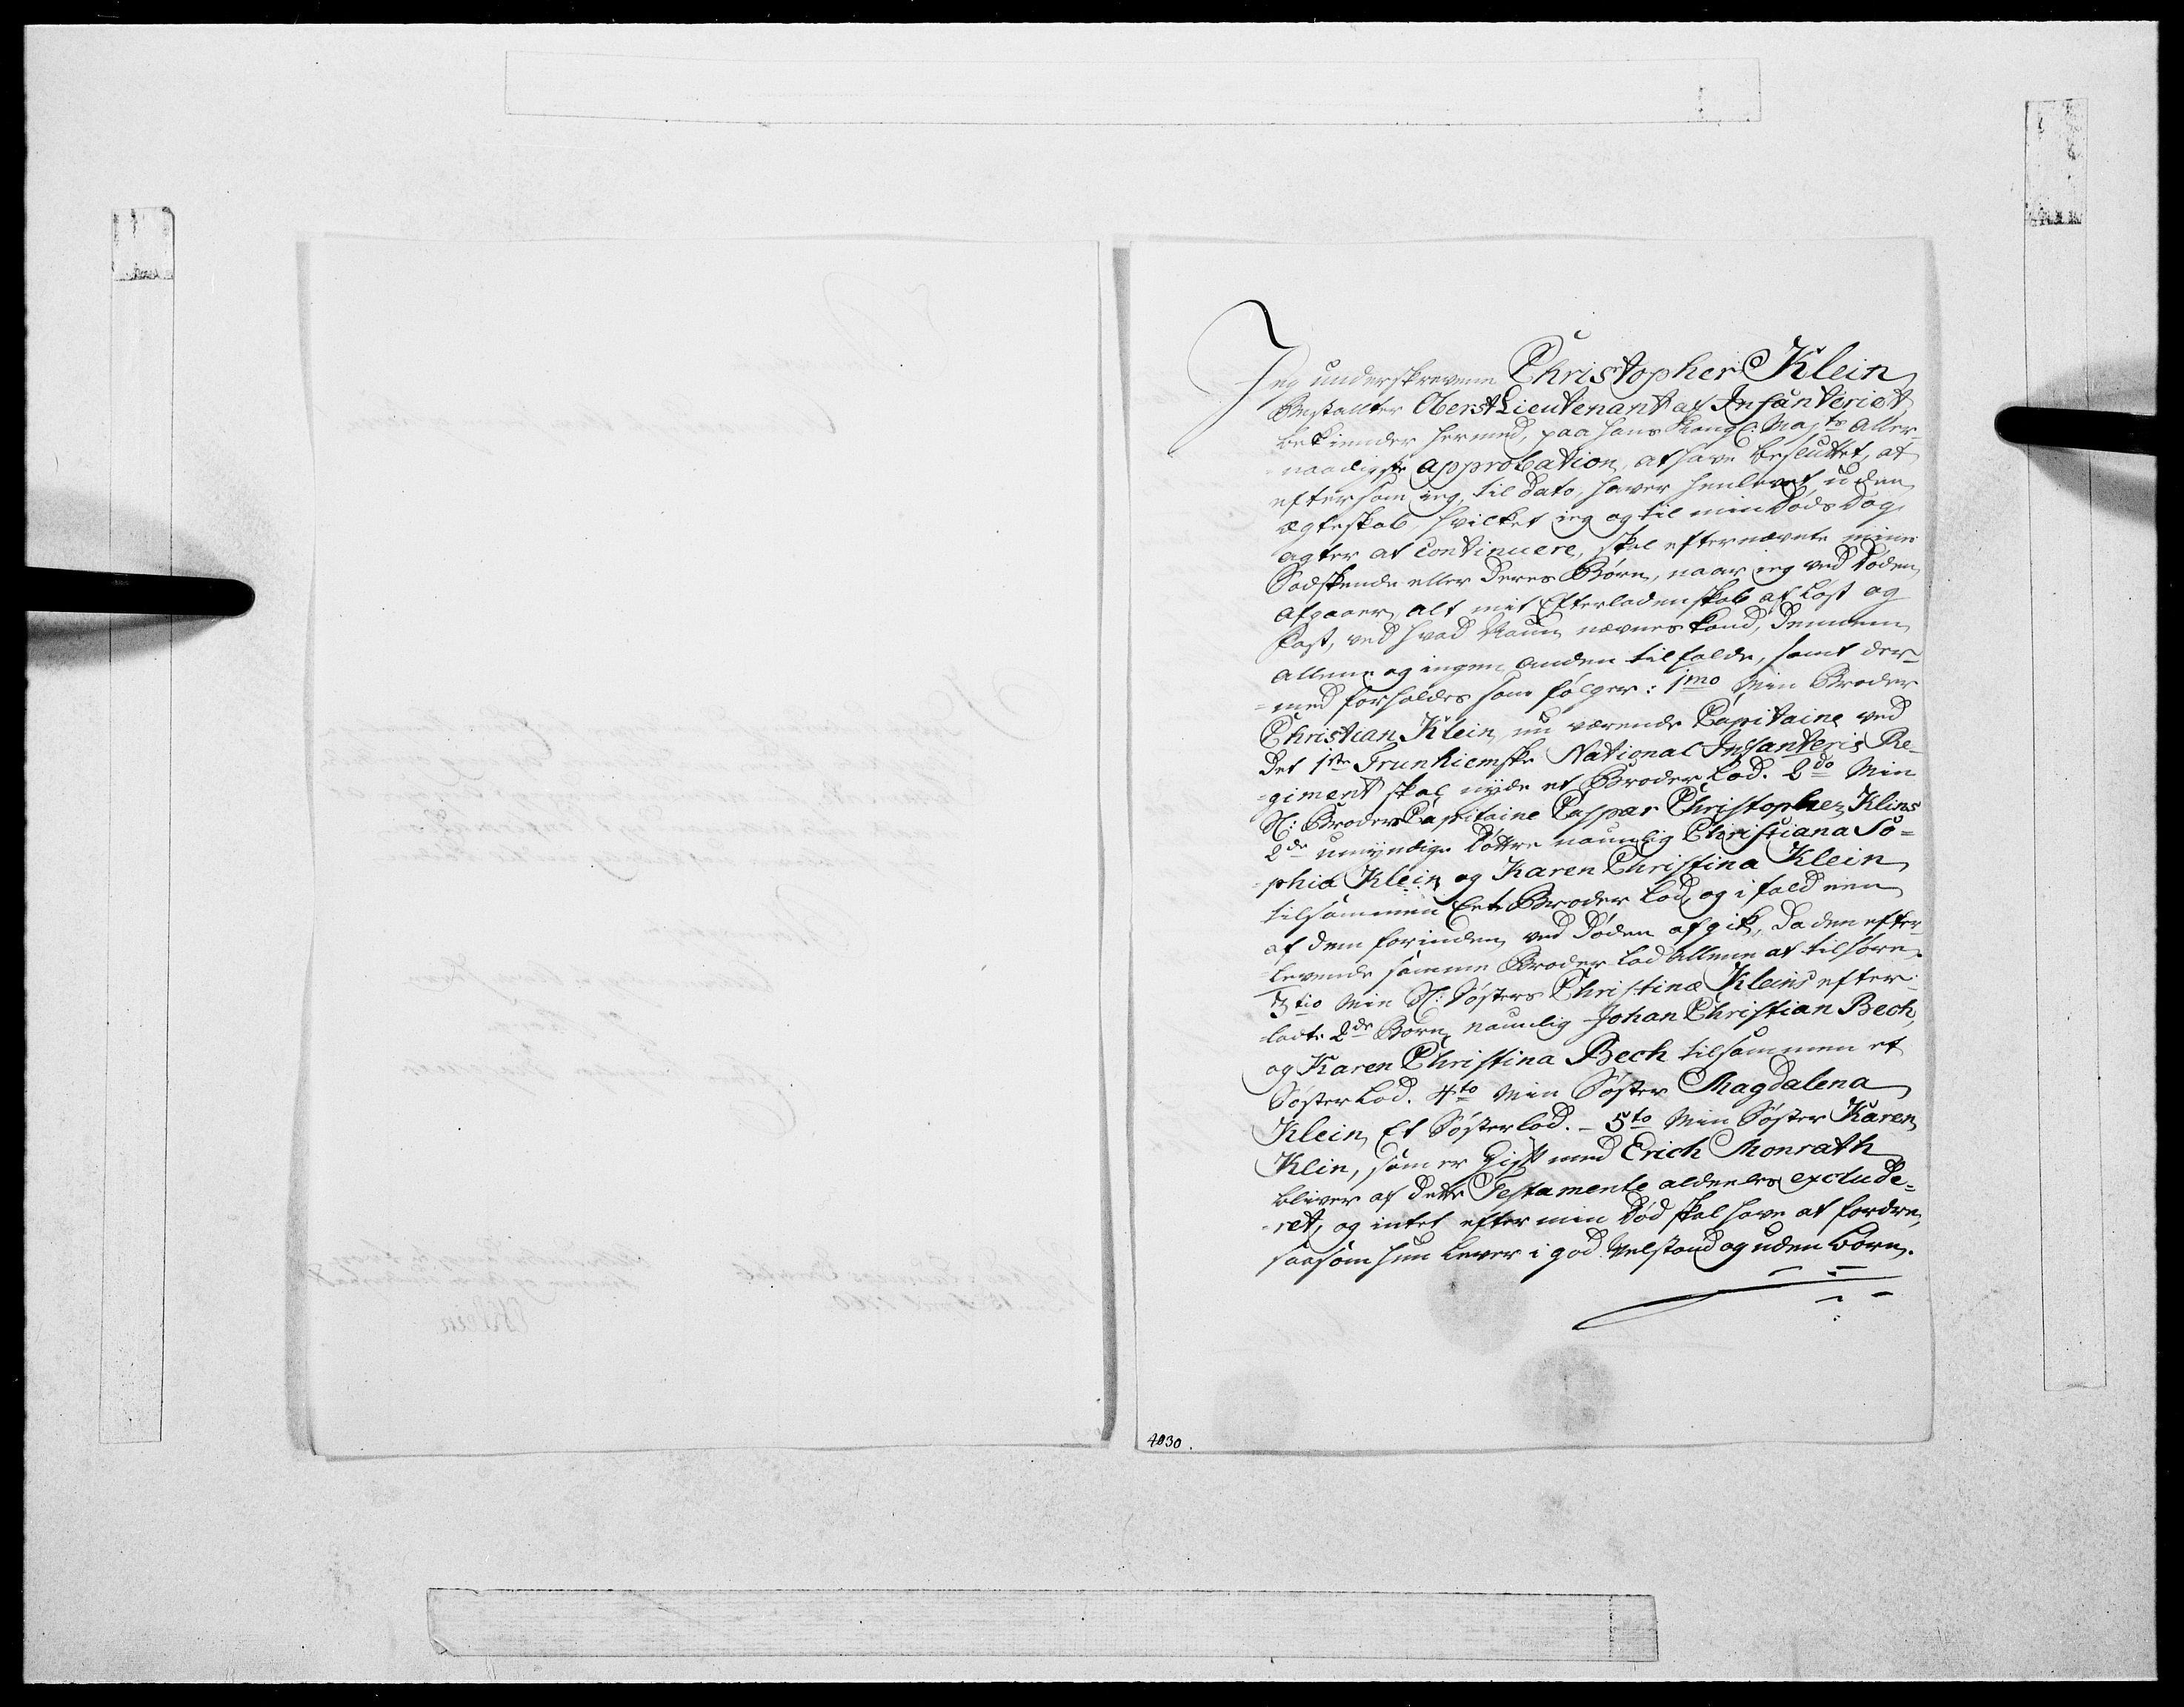 Jeg underskrevene Christopher Klein
Bestalter Oberst Lieutenant af Infanteriet,
bekiender hermed, paa Hans Kongl. Majts Aller-
naadigste approbation, at have besluttet, at
eftersom jeg, til dato, haver henlevet uden
ægteskab, hvilket jeg og til min Døds Dag
agter at continuere, skal efternævnte mine
Sødskende eller deres Børn, naar jeg ved Døden
afgaaer, alt mit Efterladenskab af Løst og
Fast, ved hvad Navn nævnes kand, dennem
allene og ingen anden tilfalde, samt der-
=med forholdes som følger: 1mo Min Broder
Christian Klein nu værende Capitaine ved
Det 1ste Trunhiemske National Infanterie Re-
=giment skal nyde et Broder Lod. 2do Min
Sl: Broders Capitaine Caspar Christopher Kleins
2de umyndige Døttre naunlig Christiana So=
=phia Klein og Karen Christina Klein
tilsammen Eet Broder Lod, og i fald een
af dem forinden ved Døden afgik, da den efter-
levende samme Broder Lod allene at tilhøre.
3tio Min Sl: Søsters Christinæ Kleins efter-
ladte 2de Børn naunlig Johan Christian Bech,
og Karen Christina Bech tilsammen et
Søster Lod. 4to Min Søster Magdalena
Klein, Et Søster lod. - 5to Min Søster Karen
Klein, som er Gift med Erich Monrath
bliver af dette Testamente aldeeles exclude=
=ret, og intet efter min Død skal have at fordre,
saasom hun lever i god Velstand og uden Børn.
4030.